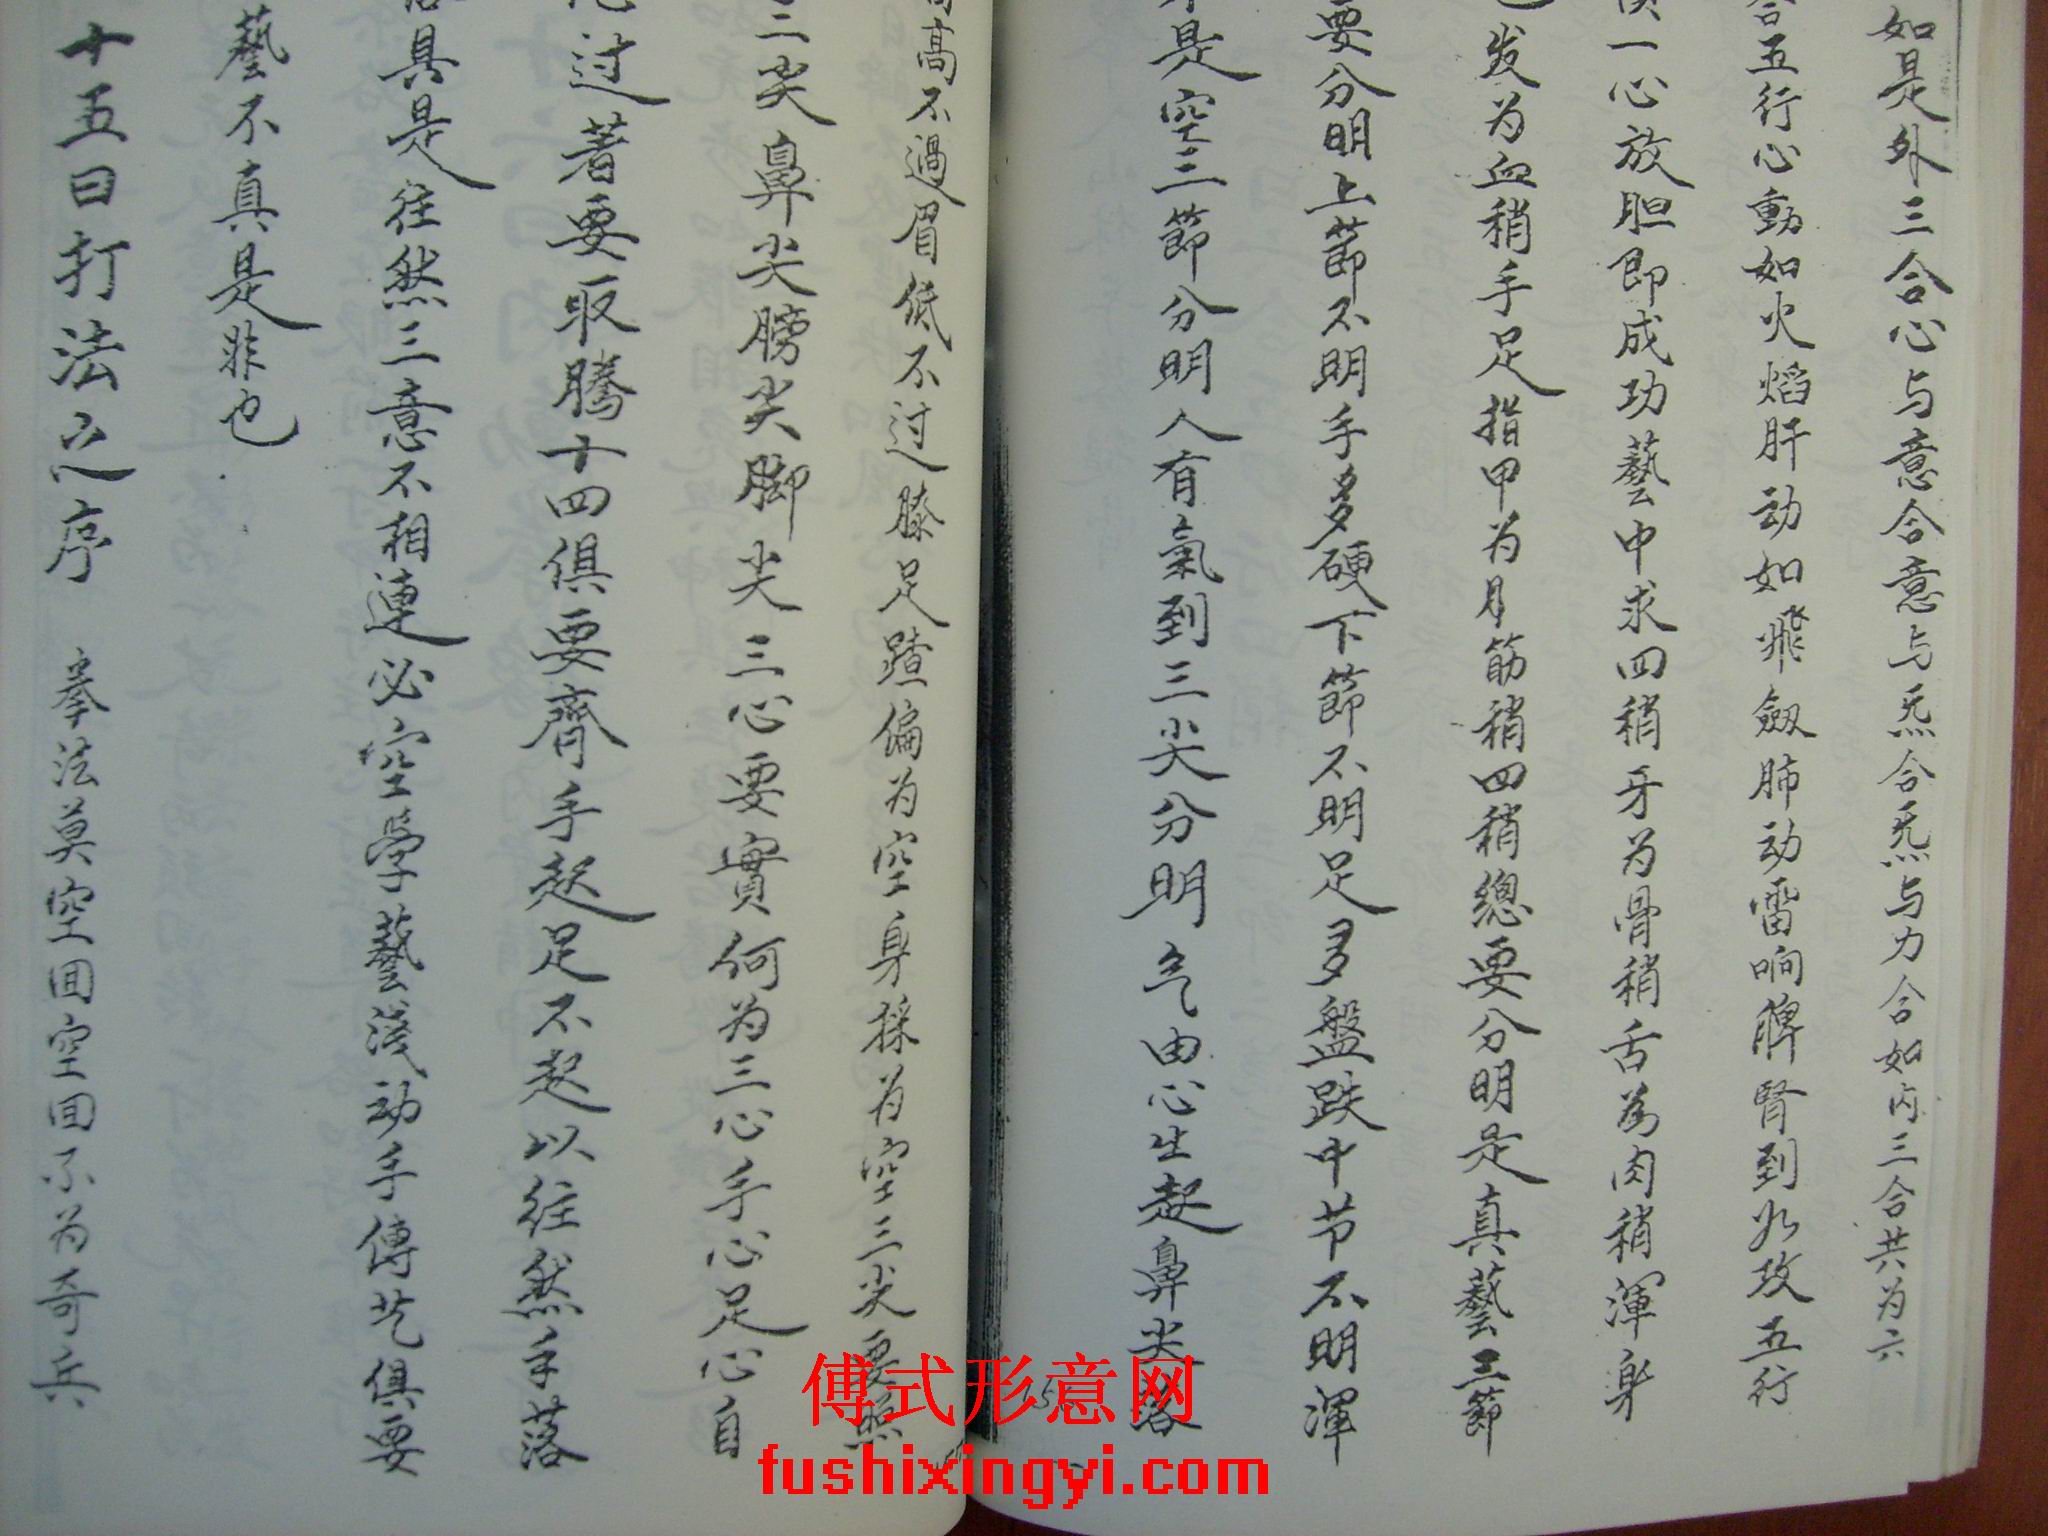 如是外三合心与意合意与炁合炁与力合如内三合共为六
合五行心動如火焰肝动如飛劔肺动雷响脾肾到攻五行
一心放胆即成功藝中求四稍牙为骨稍舌為肉稍渾身
发为血稍手足指甲为月筋稍四稍總要分明是真藝三節
要分明上節不明手多硬下節不明足多盤跌中节不明渾
是空三節分明人有氣到三尖分明气由心生起鼻尖落
高不過眉低不过膝足蹅偏为空身採为空三尖要照
三尖鼻尖膀尖脚尖三心要實何为三心手心足心自
过著要取騰十四俱要齊手起足不起以往然手落
具是往然三意不相連必空學藝淺动手傅艺俱要
藝不真是非也
十五曰打法之序 拳法莫空回空回不为奇兵
傅式形意网
fushixingyi.com